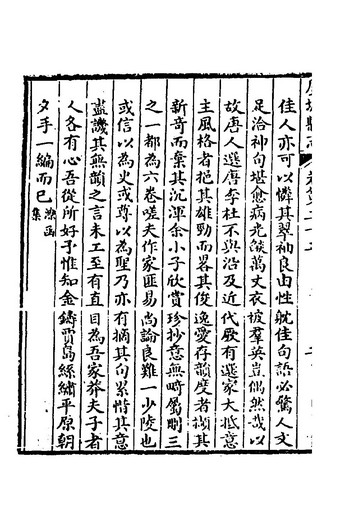 佳人亦可以憐其翠袖良由性躭佳句語必驚人文
足洽神句堪愈病光燄萬丈衣被羣英豈偶然哉以
故唐人選唐李杜不與洎及近代厥有選家大抵意
主風格者挹其雄勁而畧其俊逸愛存韻度者擷其
新奇而棄其沉渾余小子欣賞珍抄意無畸屬刪三
之一都為六卷嗟夫作家匪易尚論良難一少陵也
或信以為史或尊以為聖乃亦有摘其句累惜其意
盡譏其無韻之言未工至有直目為吾家莽夫子者
人各有心吾從所好予惟知金鑄賈島絲繡平原朝
夕手一編而已
集